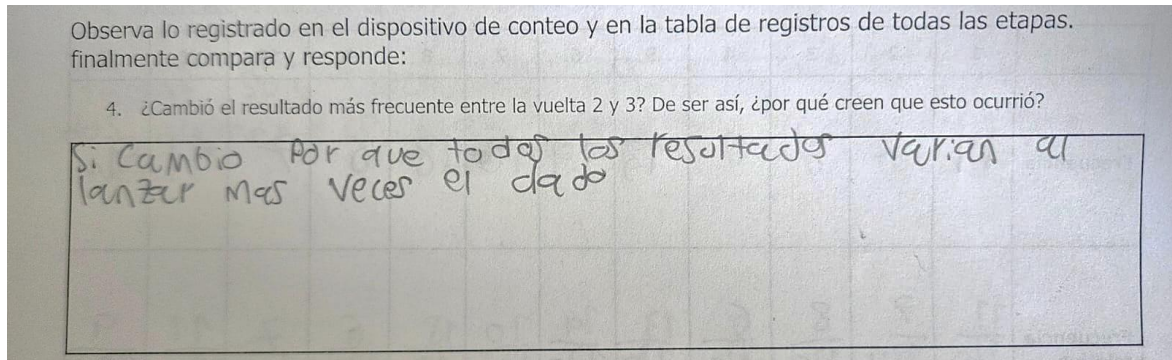 Observa lo registrado en el dispositivo de conteo y en la tabla de registros de todas las etapas.
finalmente compara y responde:
4. ¿Cambió el resultado más frecuente entre la vuelta 2 y 3? De ser así, ¿por qué creen que esto ocurrió?
Si Cambio Por que todos los resultados varian al
lanzar mas veces el dado